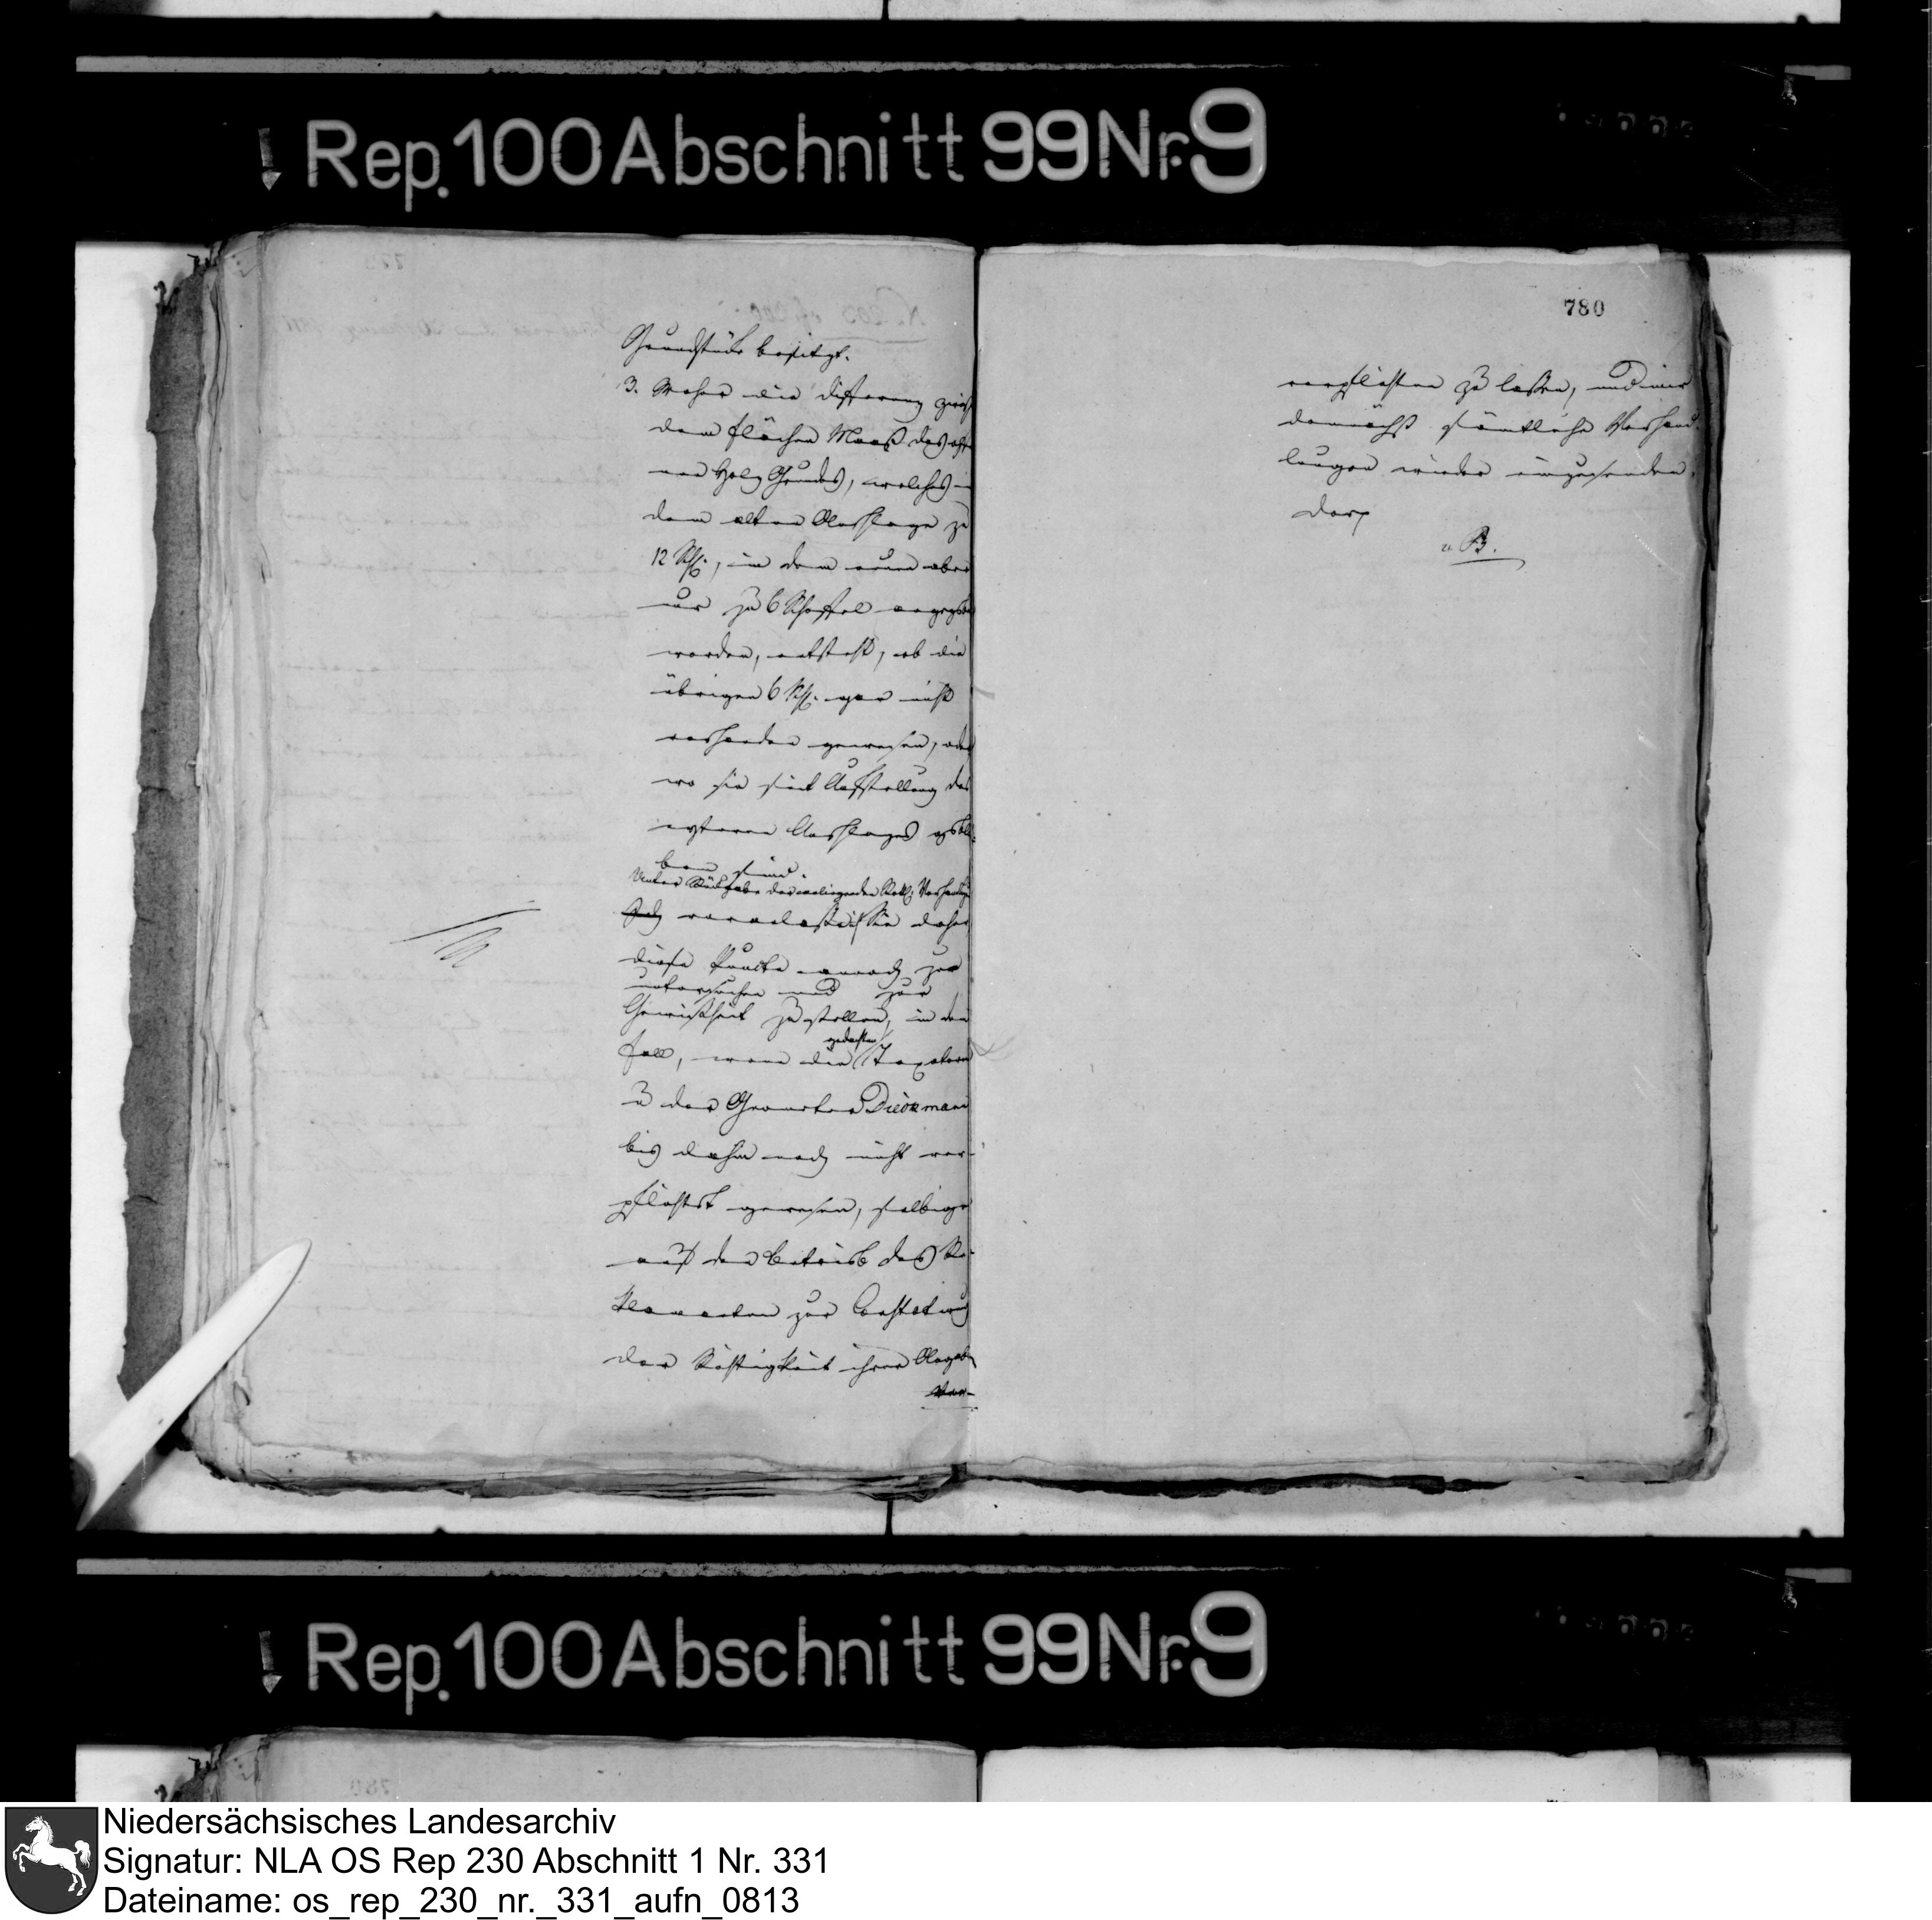 Rep. 100 Abschnitt 99 Nr. 9
Grundstücke besitzt.
3. Woher die Differenz zwisch
dem Flächen Maaß des
Holz Grundes, welches in
dem alten Anschlage zu
12 Schf., in dem neuen aber
nur zu 6 Scheffel angegeb
worden, entsteht, ob die
übrigen 6 Schf. gar nicht
vorhanden gewesen, oder
wo sie seit Aufstellung des
ersteren Anschlages geblie-
ben sind.
Unter Rückgabe der anliegenden Verhandlg
veranlaße ich Sie daher
diese Puncte annoch zu
untersuchen und zur
Gewißheit zu stellen, in dem
Fall, wenn die gedachten Taxatoren
u der Geometer Dieckmann
bis dahin noch nicht ver-
pflichtet gewesen, selbige
auf den Betrieb des Re-
klamanten zur Bestätigung
der Richtigkeit ihrer Angaben
ver-
780
verpflichten zu laßen, und mir
demnächst sämtliche Verhand-
lungen wieder einzusenden.
v. B.
Rep. 100 Abschnitt 99 Nr. 9
Niedersächsisches Landesarchiv
Signatur: NLA OS Rep 230 Abschnitt 1 Nr. 331
Dateiname: os_rep_230_nr._331_aufn_0813